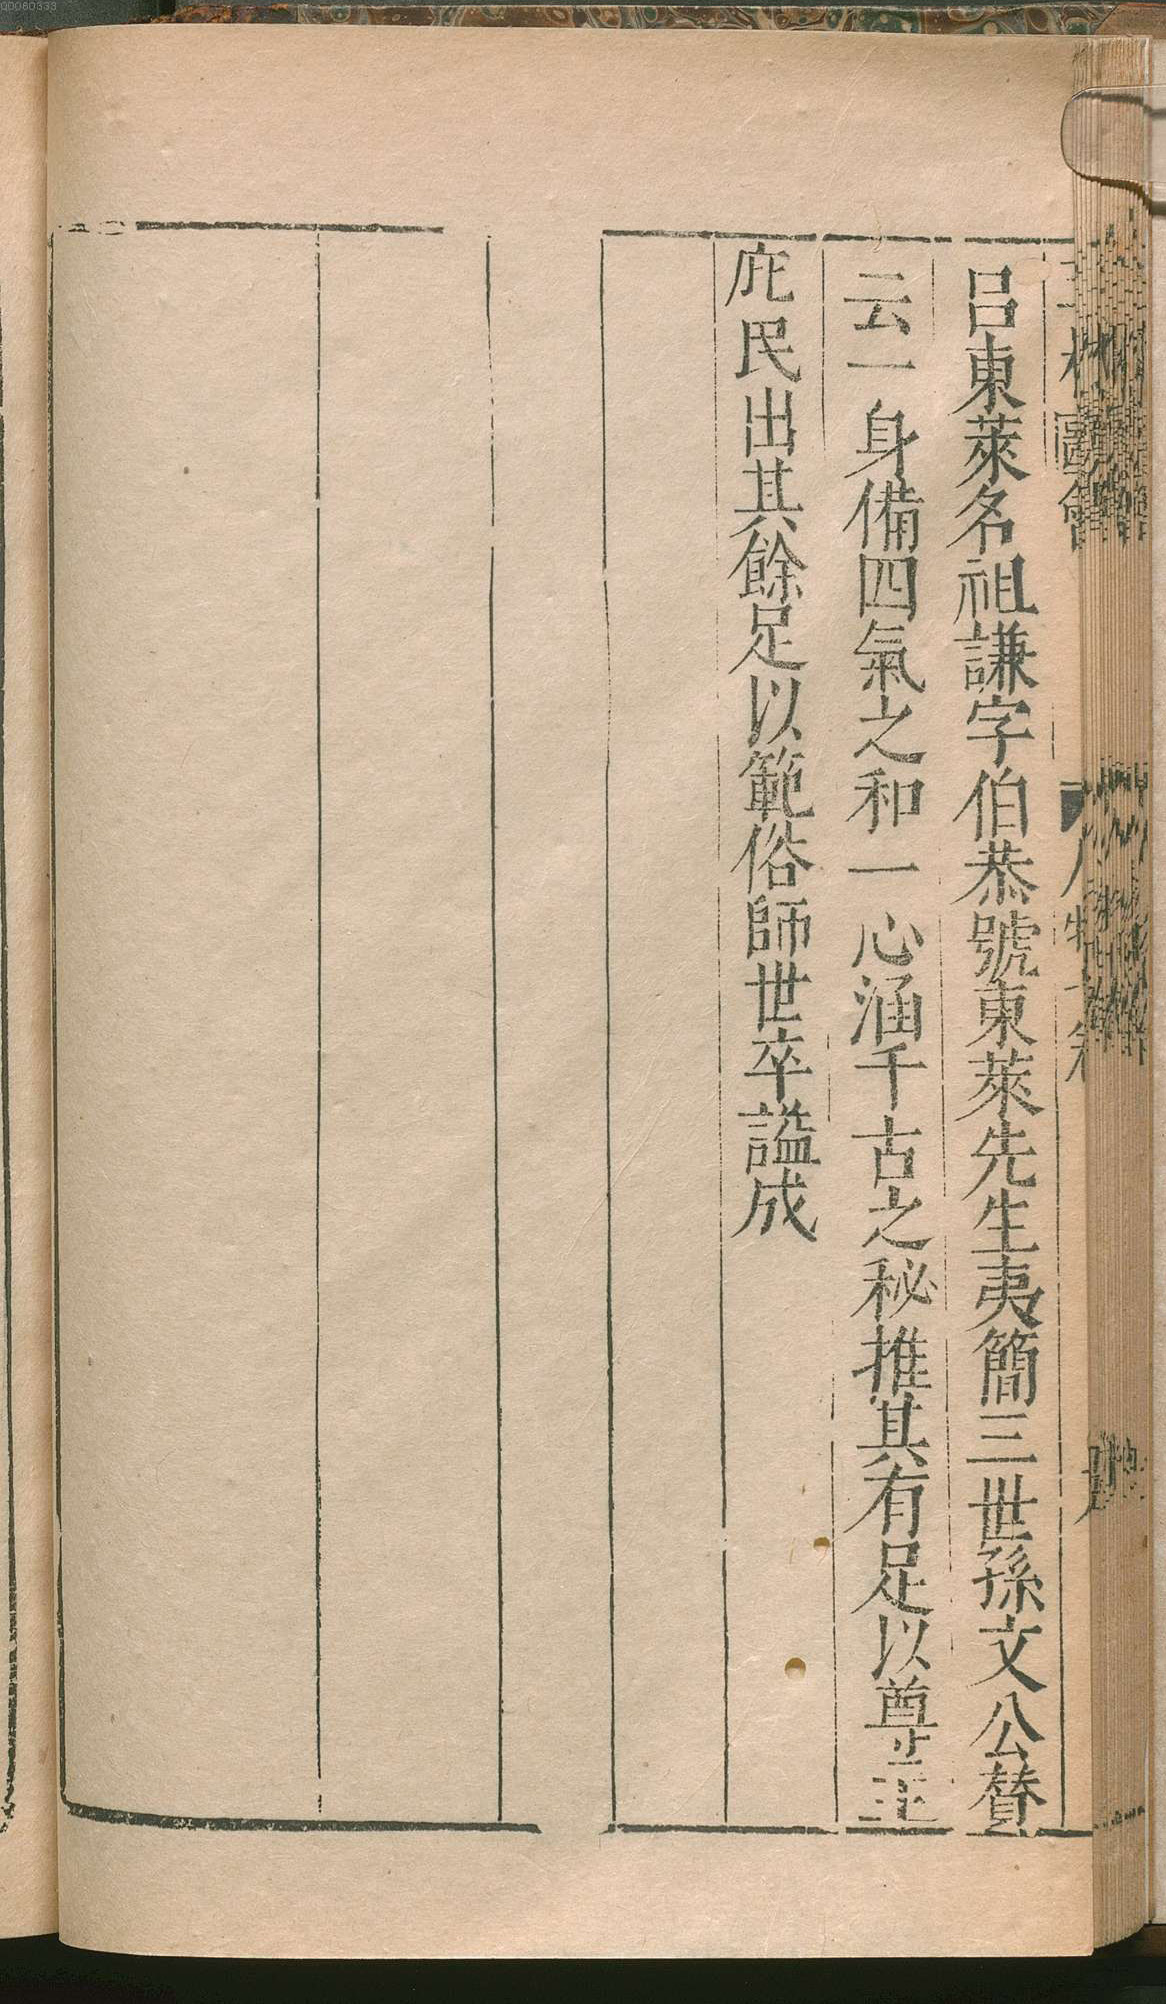 呂東萊名祖謙字伯恭號東萊先生夷簡三世孫文公贊
云一身備四氣之和一心涵千古之秘推其有足以尊主
庇民出其餘足以範俗師世卒謚成
00060333